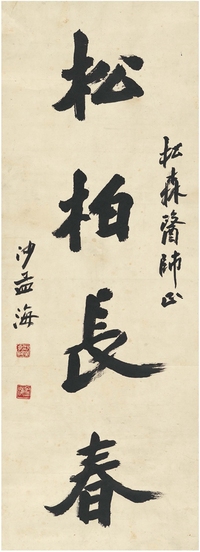 松森醫師正
松柏長春
沙孟海